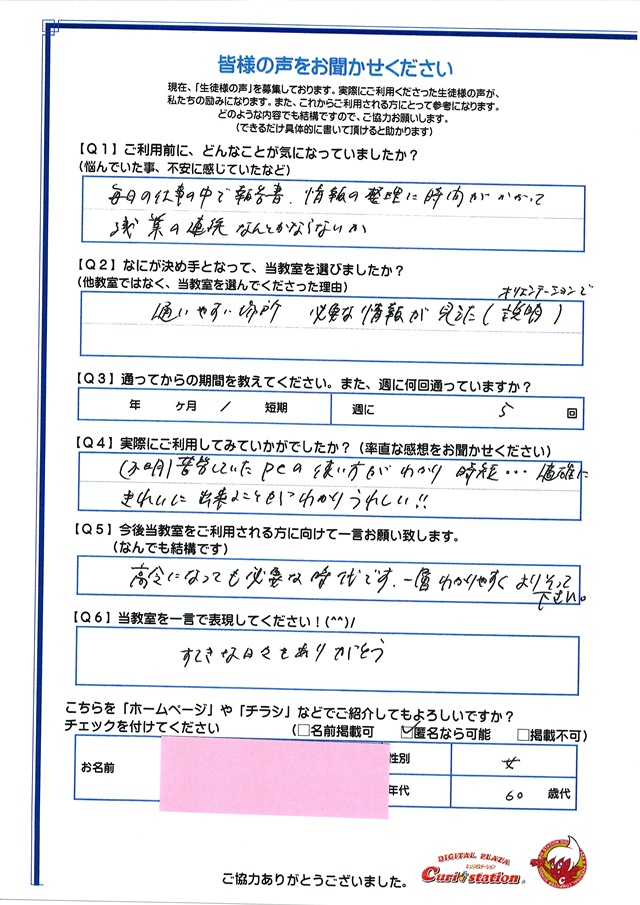 皆様の声をお聞かせください
現在、「生徒様の声」を募集しております。実際にご利用くださった生徒様の声が、
私たちの励みになります。また、これからご利用される方にとって参考になります。
どのような内容でも結構ですので、ご協力お願いします。
(できるだけ具体的に書いて頂けると助かります)
【Q1】ご利用前に、どんなことが気になっていましたか？
(悩んでいた事、不安に感じていたなど)
毎日の仕事の中で報告書、情報の整理に時間がかかって
残業の連続なんとかならないか
【Q2】なにが決め手となって、当教室を選びましたか？
(他教室ではなく、当教室を選んでくださった理由)
オリエンテーションで
通いやすい場所 必要な情報が見えた(説明)
【Q3】通ってからの期間を教えてください。また、週に何回通っていますか？
年 ヶ月 / 短期 週に 5 回
【Q4】実際にご利用してみていかがでしたか？(率直な感想をお聞かせください)
(不明)苦労していたPCの使い方がわかり 時短･･･ 確に
きれいに出来ることがわかりうれしい!!
【Q5】今後当教室をご利用される方に向けて一言お願い致します。
(なんでも結構です)
高令になっても必要な時代です、一層わかりやすくよりそって
下さい。
【Q6】当教室を一言で表現してください！(^^)/
すてきな日々をありがとう
こちらを「ホームページ」や「チラシ」などでご紹介してもよろしいですか？
チェックを付けてください (□名前掲載可 ☑匿名なら可能 □掲載不可)
お名前 性別 女
年代 60 歳代
DIGITAL PLAZA
Curio station
ご協力ありがとうございました。